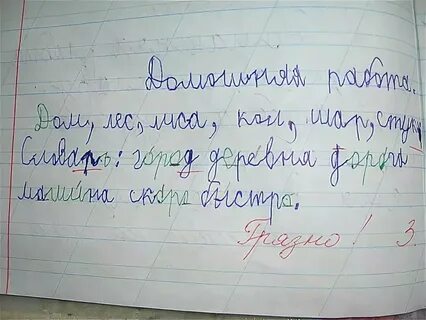 Домошняя работа.
Дом, лес, лиса, кот, шар, стук
Словарь: город деревна дорога
машина скоро быстро.
Грязно! 3.